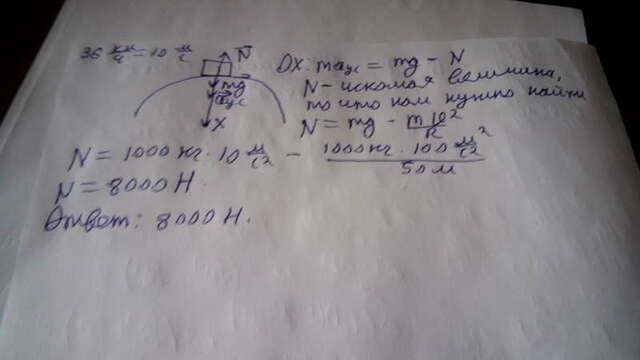 36 км/ч = 10 м/с
N
mg
aцс
X
OX: maцс = mg - N
N - искомая величина,
то что нам нужно найти
N = mg - mv²/R
N = 1000 кг · 10 м/с² - 1000 кг · 100 м²/с² / 50 м
N = 8000 Н
Ответ: 8000 Н.